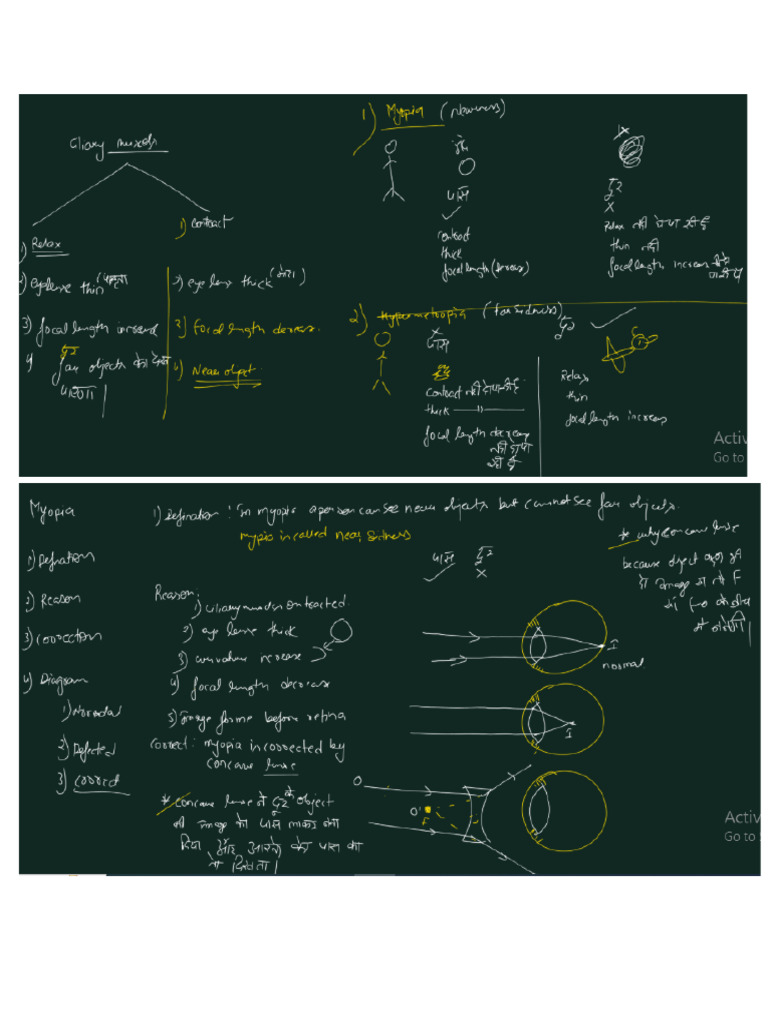 Ciliary muscels
1) Relax
2) eyelense thin (पतला)
3) focal length incread
4) दूर
far objects को देख
पाएगा
1) contract
2) eye lens thick (मोटा)
3) Focal length decreas.
4) Near objet.
1) Myopia (nearness)
पास
contact
thick
focal length (decreas)
दूर
X
Relax नहीं हो पा रही है
thin नहीं
focal length increase
2) Hypermetropia (farsidness)
X
पास
contract नहीं
thick
focal length decreas
नहीं हो पा
रही है
दूर
Relax
thin
focal length increas
Activ
Go to
Myopia
1) Defination
2) Reason
3) correction
4) Diagram
1) Normal
2) Defected
3) correct
1) Defination : In myopia a person can see near objects but cannot see far objects.
myopia in called near sidness
पास दूर
X
Reason:
1) ciliary muscles contracted
2) eye lense thick
3) curvature increase
4) focal length decrease
5) Image forme before retina
correct: myopia in corrected by
concave lense
* concave lense ने दूर के object
की image को पास लाकर बना
दिया और आदमी को पास का
तो दिखता।
I
normal
I
O
O'
F
* why concave lense
because object
तो image
F
Activ
Go to